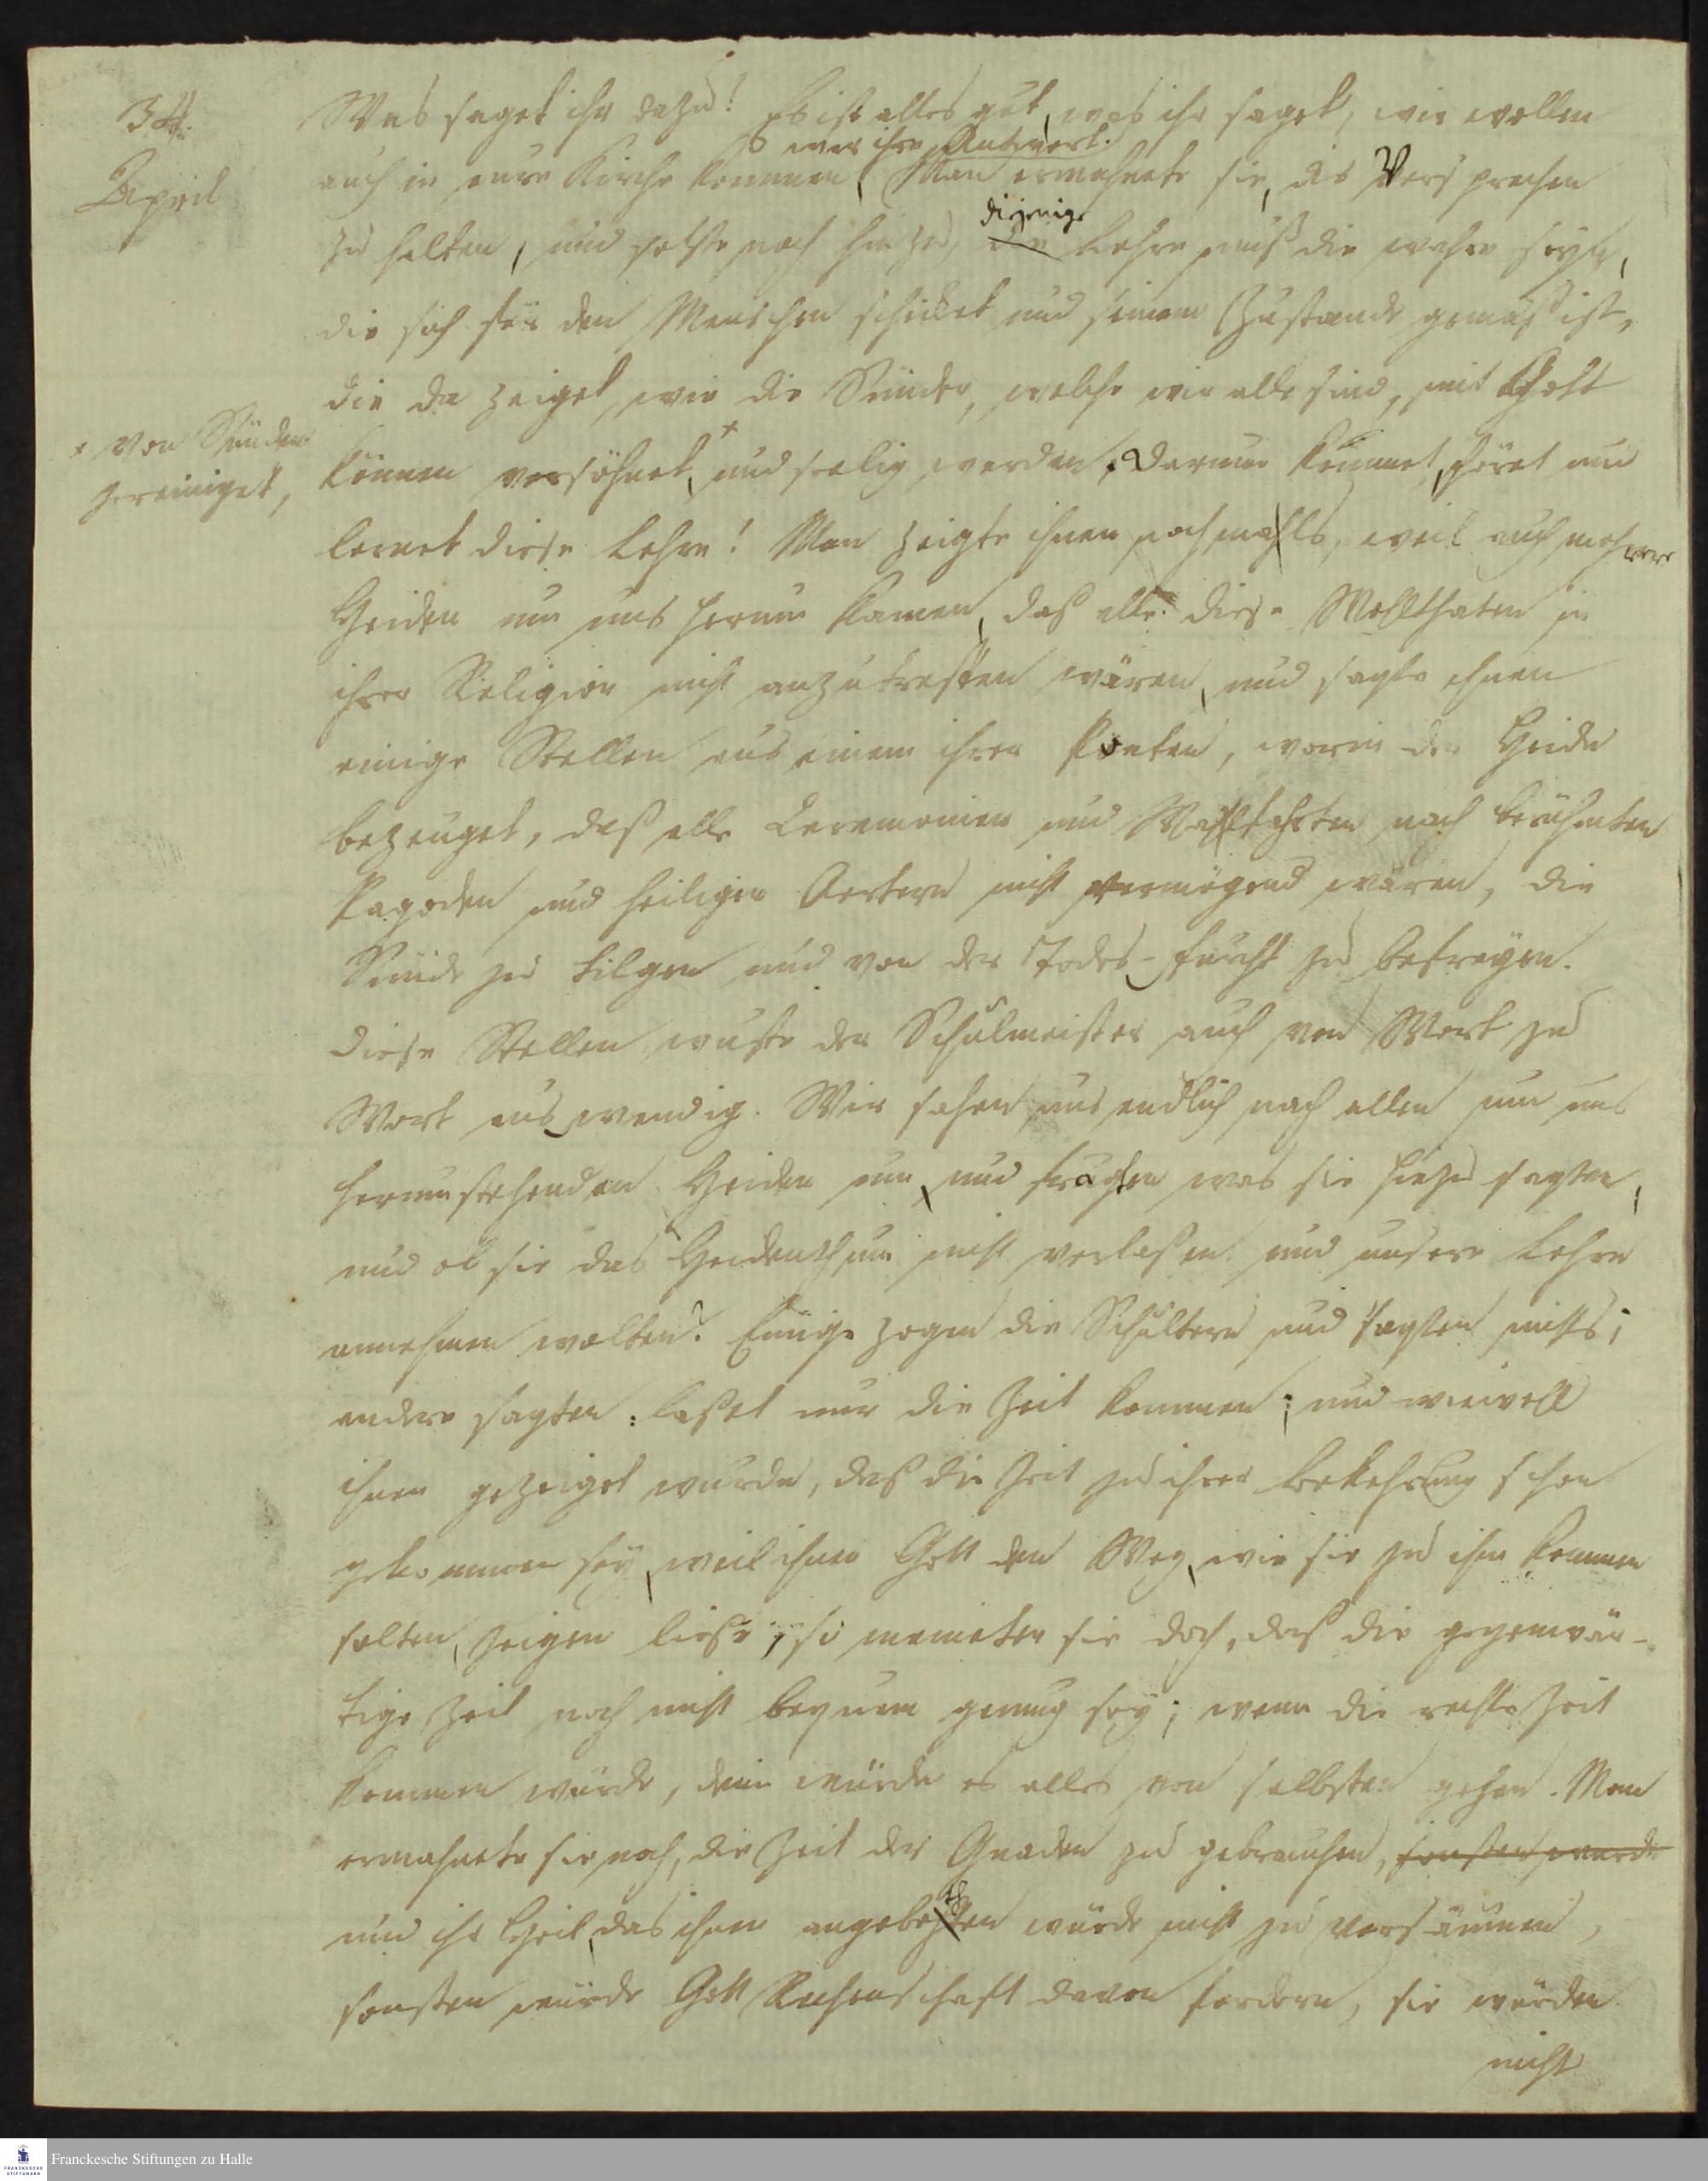 34.
April
Was saget ihr dazu! Es ist alles gut, was ihr saget, wir wollen
war ihre Antwort.
auch in eure Kirche kommen, Man ermahnete sie, das Versprechen
diejenige
zu halten, und setzte noch hinzu, die Lehre muß die wahre seyn,
die sich für den Menschen schicket und seinem Zustande gemäß ist,
die da zeiget, wie die Sünder, welche wir alle sind, mit Gott
* von Sünden
gereiniget,
können versöhnet, + und seelig werden. Darum kommet, höret und
lernet diese Lehre! Man zeigte ihnen nochmahls, weil auch mehrere
Heiden um uns herum kamen, daß alle diese Wollthaten in
ihrer Religion nicht anzutreffen wären, und sagte ihnen
einige Stellen aus einem ihrer Poeten, worin der Heide
bezeuget, daß alle Ceremonien und Wallfahrten nach berühmten
Pagoden und heiligen Oertern nicht vermögend wären, die
Sünde zu tilgen und von der Todes-Furcht zu befreyen.
Diese Stellen wuste der Schulmeister auch von Wort zu
Wort auswendig. Wir sahen uns endlich nach allen um uns
herumstehenden Heiden um, und fragten was sie hiezu sagten,
und ob sie das Heidenthum nicht verlaßen und unsere Lehre
annehmen wolten? Einige zogen die Schultern und sagten nichts;
andere sagten: Laßet nur die Zeit kommen; und wiewoll
ihnen gezeiget wurde, daß die Zeit zu ihrer Bekehrung schon
gekommen sey, weil ihnen Gott den Weg, wie sie zu ihm kommen
solten, zeigen ließe; so meineten sie doch, daß die gegenwär-
tige Zeit noch nicht bequem genug sey; wenn die rechte Zeit
kommen würde, denn würde es alles von selbsten gehen. Man
ermahnete sie noch, die Zeit der Gnaden zu gebrauchen, sonsten würde
th
und ihr Heil, das ihnen angeboten würde nicht zu versäumen,
sonsten würde Gott Rechenschaft davon fordern, sie würden
nicht
FRANCKESCHE STIFTUNGEN
Franckesche Stiftungen zu Halle